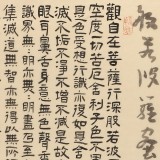 般若波羅蜜
觀自在菩薩行深般若波
空度一切苦厄舍利子色
色受想行識亦復如是舍
滅不垢不淨不增不減是
眼耳鼻舌身意無色聲
無明亦無無明盡乃至
集滅道無智亦無得以無所